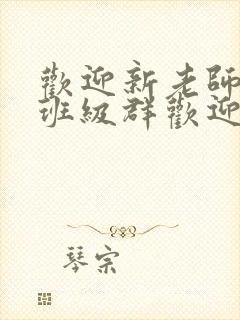 歡迎新老師
班級群歡迎
琴宗